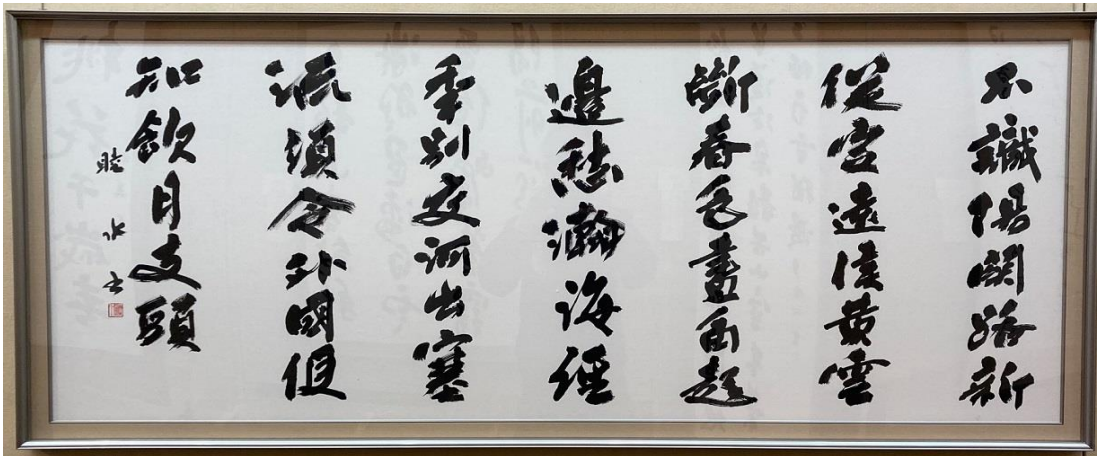 不識陽關路新
從定遠侯黄雲
斷春色畫角起
邊愁瀚海經
年別交河出塞
流須令外國使
知飲月支頭